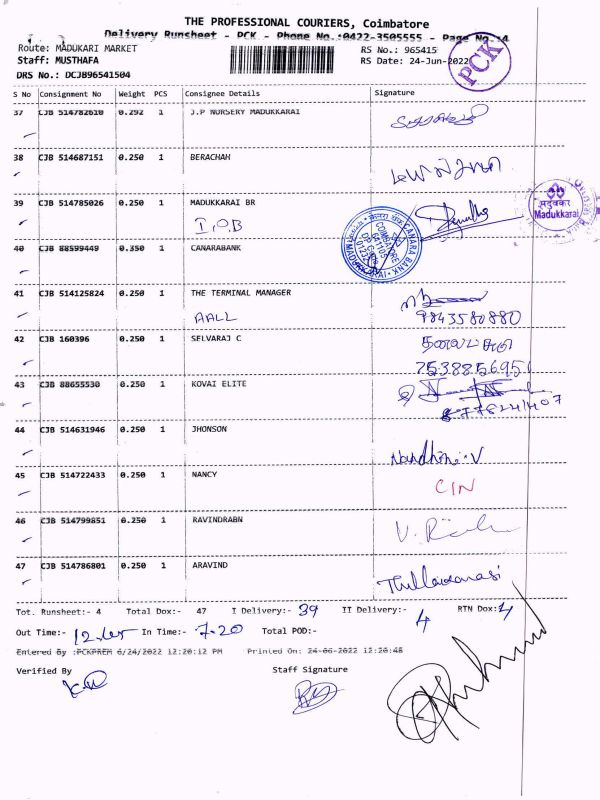 THE PROFESSIONAL COURIERS, Coimbatore
Delivery Runsheet - PCK - Phone No.:0422-3505555 - Page No.:4
Route: MADUKARI MARKET RS No.: 965415
Staff: MUSTHAFA RS Date: 24-Jun-2022
DRS No.: DCJB96541504
PCK
S No Consignment No Weight PCS Consignee Details Signature
37 CJB 514782610 0.292 1 J.P NURSERY MADUKKARAI
38 CJB 514687151 0.250 1 BERACHAH
39 CJB 514785026 0.250 1 MADUKKARAI BR
I.O.B
Madukkarai
40 CJB 88599449 0.350 1 CANARABANK
CANARA BANK
COIMBATORE
641105
41 CJB 514125824 0.250 1 THE TERMINAL MANAGER
AALL 9843580880
42 CJB 160396 0.250 1 SELVARAJ C
7538856951
43 CJB 88655530 0.250 1 KOVAI ELITE
44 CJB 514631946 0.250 1 JHONSON
Nandhini.V
45 CJB 514722433 0.250 1 NANCY
CIN
46 CJB 514799851 0.250 1 RAVINDRABN
47 CJB 514786801 0.250 1 ARAVIND
Tot. Runsheet:- 4 Total Dox:- 47 I Delivery:- 39 II Delivery:- 4 RTN Dox:- 4
Out Time:- In Time:- 7-20 Total POD:-
Entered By :PCKPREM 6/24/2022 12:20:12 PM Printed On: 24-06-2022 12:20:48
Verified By Staff Signature